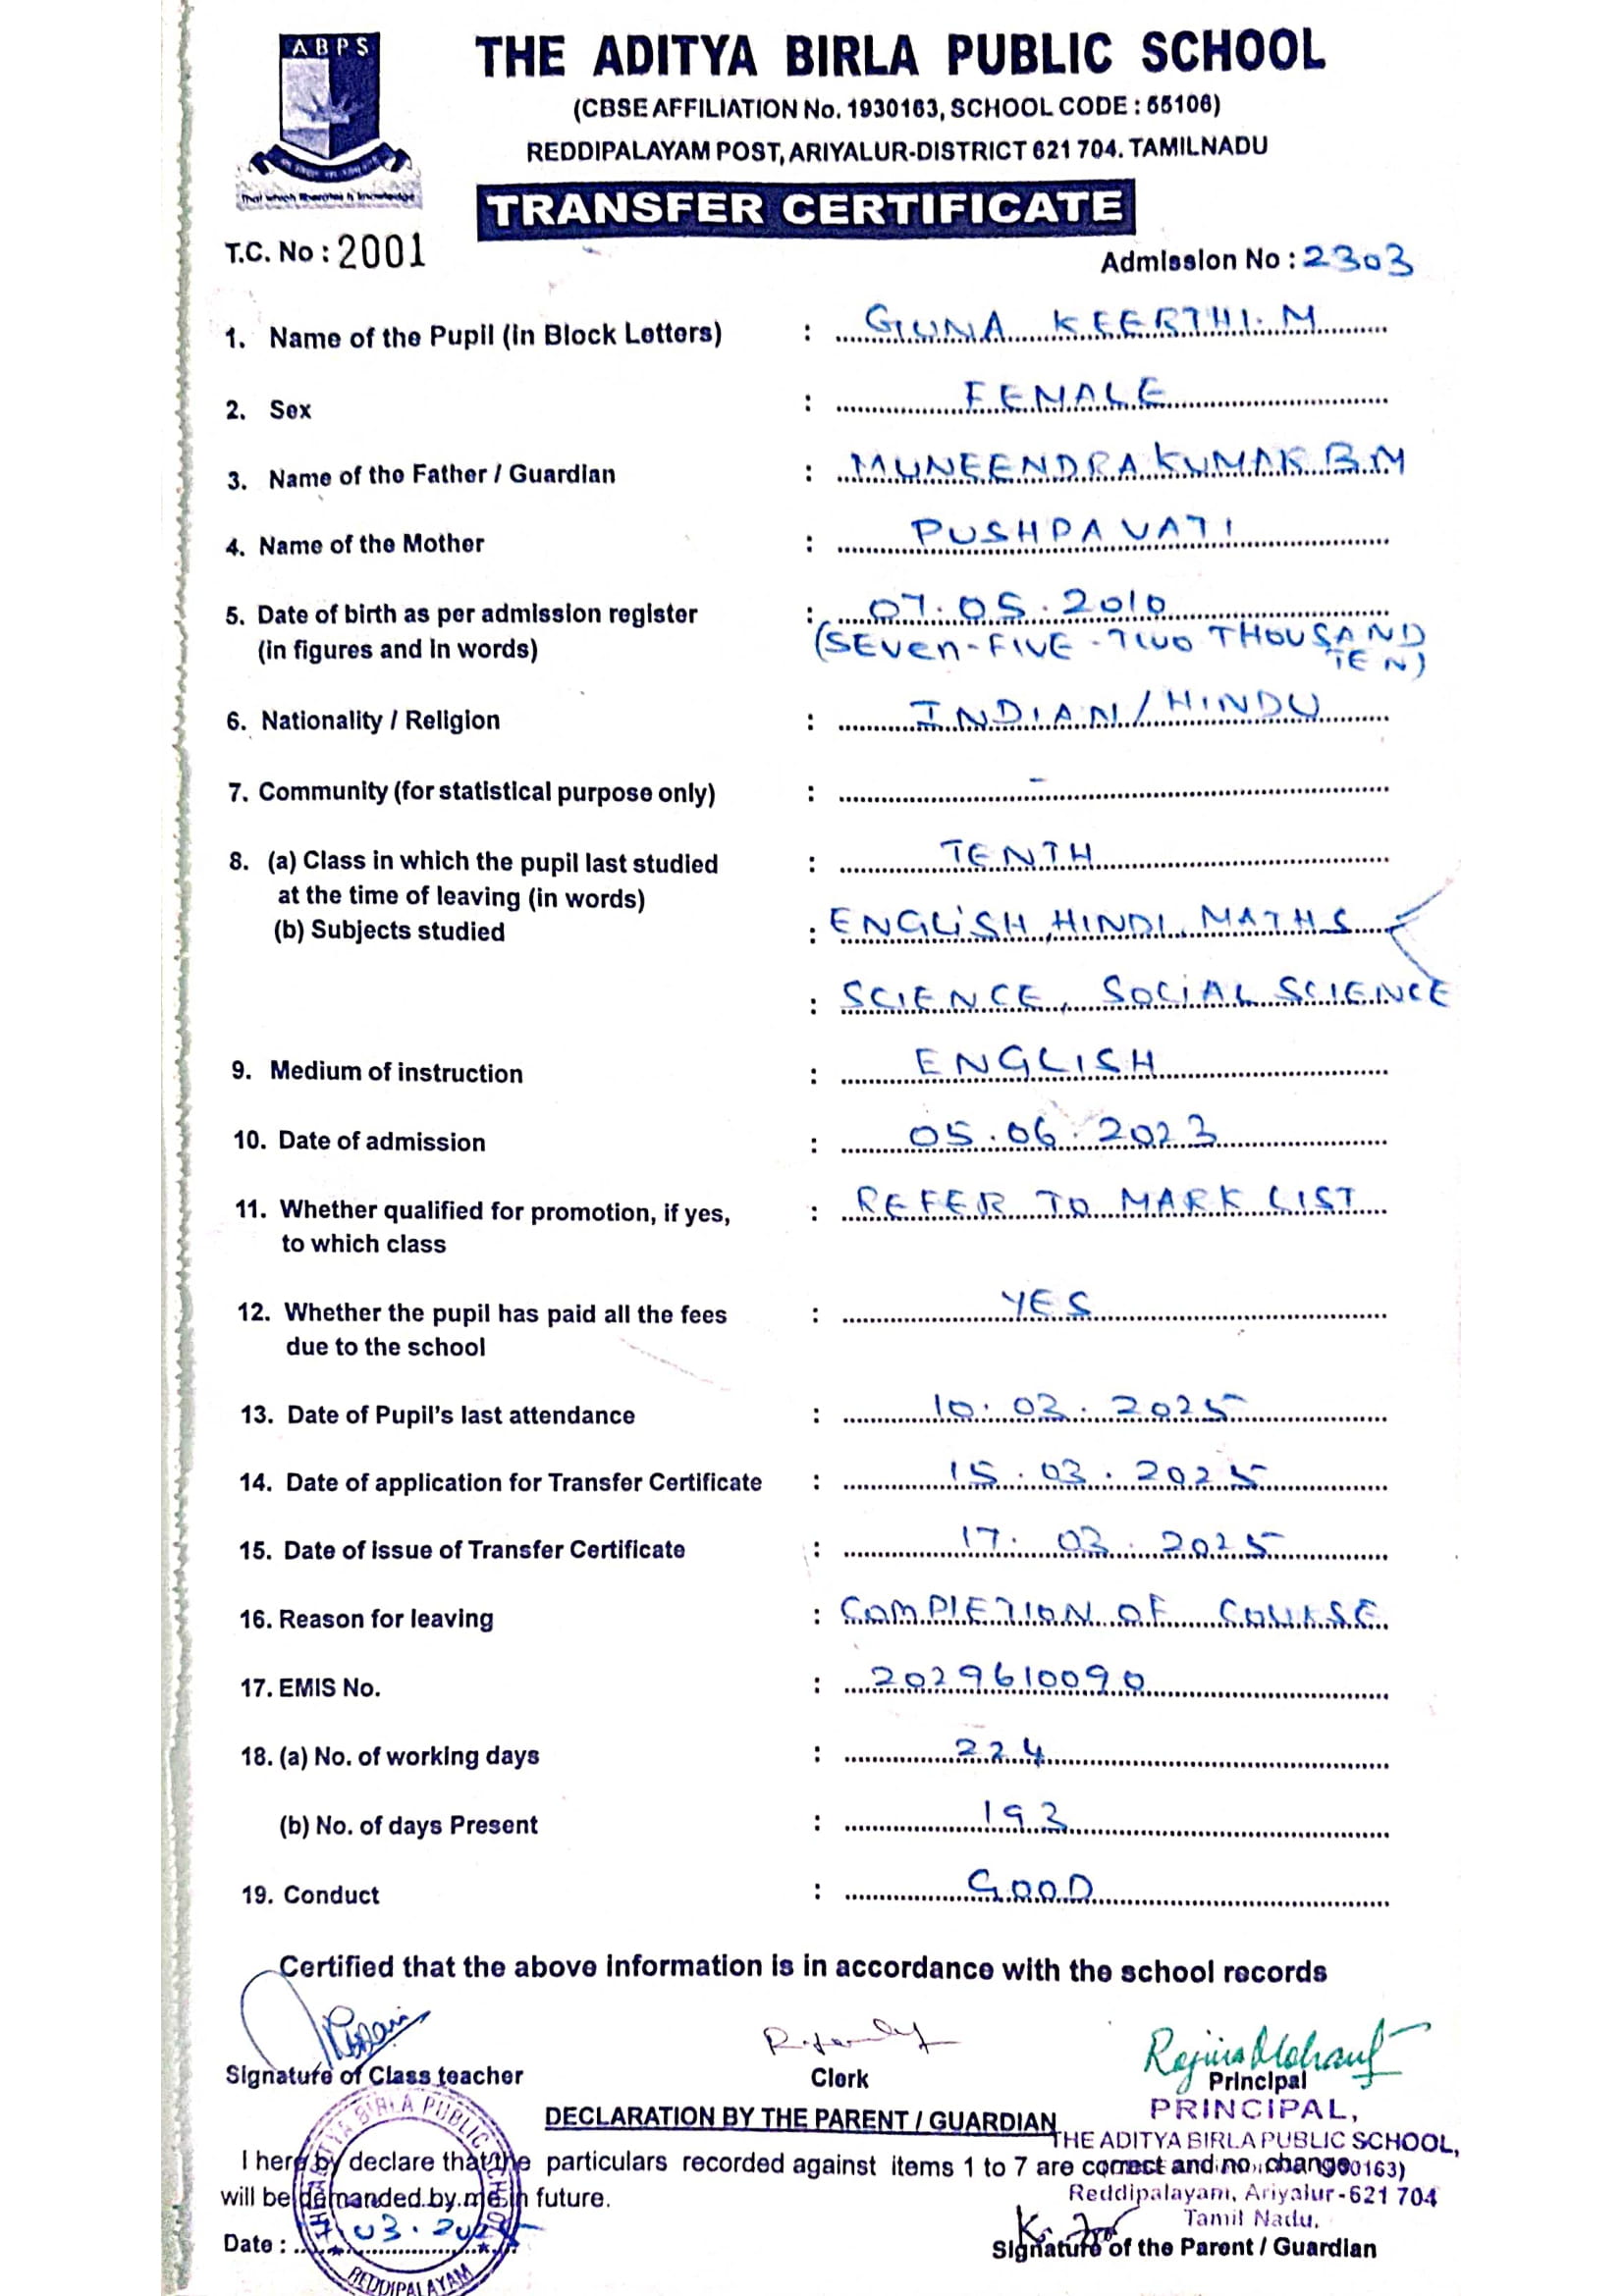 ABPS
THE ADITYA BIRLA PUBLIC SCHOOL
(CBSE AFFILIATION No. 1930163, SCHOOL CODE : 55106)
REDDIPALAYAM POST, ARIYALUR-DISTRICT 621 704. TAMILNADU
That which liberates is knowledge
TRANSFER CERTIFICATE
T.C. No : 2001
Admission No : 2303
1. Name of the Pupil (in Block Letters) : GUNA KEERTHI. M
2. Sex : FEMALE
3. Name of the Father / Guardian : MUNEENDRA KUMAR B.M
4. Name of the Mother : PUSHPAVATI
5. Date of birth as per admission register : 07.05.2010
(in figures and in words) (SEVEN-FIVE-TWO THOUSAND
TEN)
6. Nationality / Religion : INDIAN/HINDU
7. Community (for statistical purpose only) : -
8. (a) Class in which the pupil last studied : TENTH
at the time of leaving (in words)
(b) Subjects studied : ENGLISH, HINDI, MATHS
: SCIENCE, SOCIAL SCIENCE
9. Medium of instruction : ENGLISH
10. Date of admission : 05.06.2023
11. Whether qualified for promotion, if yes, : REFER TO MARK LIST
to which class
12. Whether the pupil has paid all the fees : YES
due to the school
13. Date of Pupil's last attendance : 10.03.2025
14. Date of application for Transfer Certificate : 15.03.2025
15. Date of issue of Transfer Certificate : 17.03.2025
16. Reason for leaving : COMPLETION OF COURSE
17. EMIS No. : 2029610090
18. (a) No. of working days : 224
(b) No. of days Present : 193
19. Conduct : GOOD
Certified that the above information is in accordance with the school records
Signature of Class teacher
Clerk
Principal
PRINCIPAL,
DECLARATION BY THE PARENT / GUARDIAN
THE ADITYA BIRLA PUBLIC SCHOOL,
I here by declare that the particulars recorded against items 1 to 7 are correct and no change
will be demanded by me in future.
Reddipalayam, Ariyalur-621 704
Tamil Nadu.
Date : 17.03.2025
Signature of the Parent / Guardian
THE ADITYA BIRLA PUBLIC SCHOOL
REDDIPALAYAM